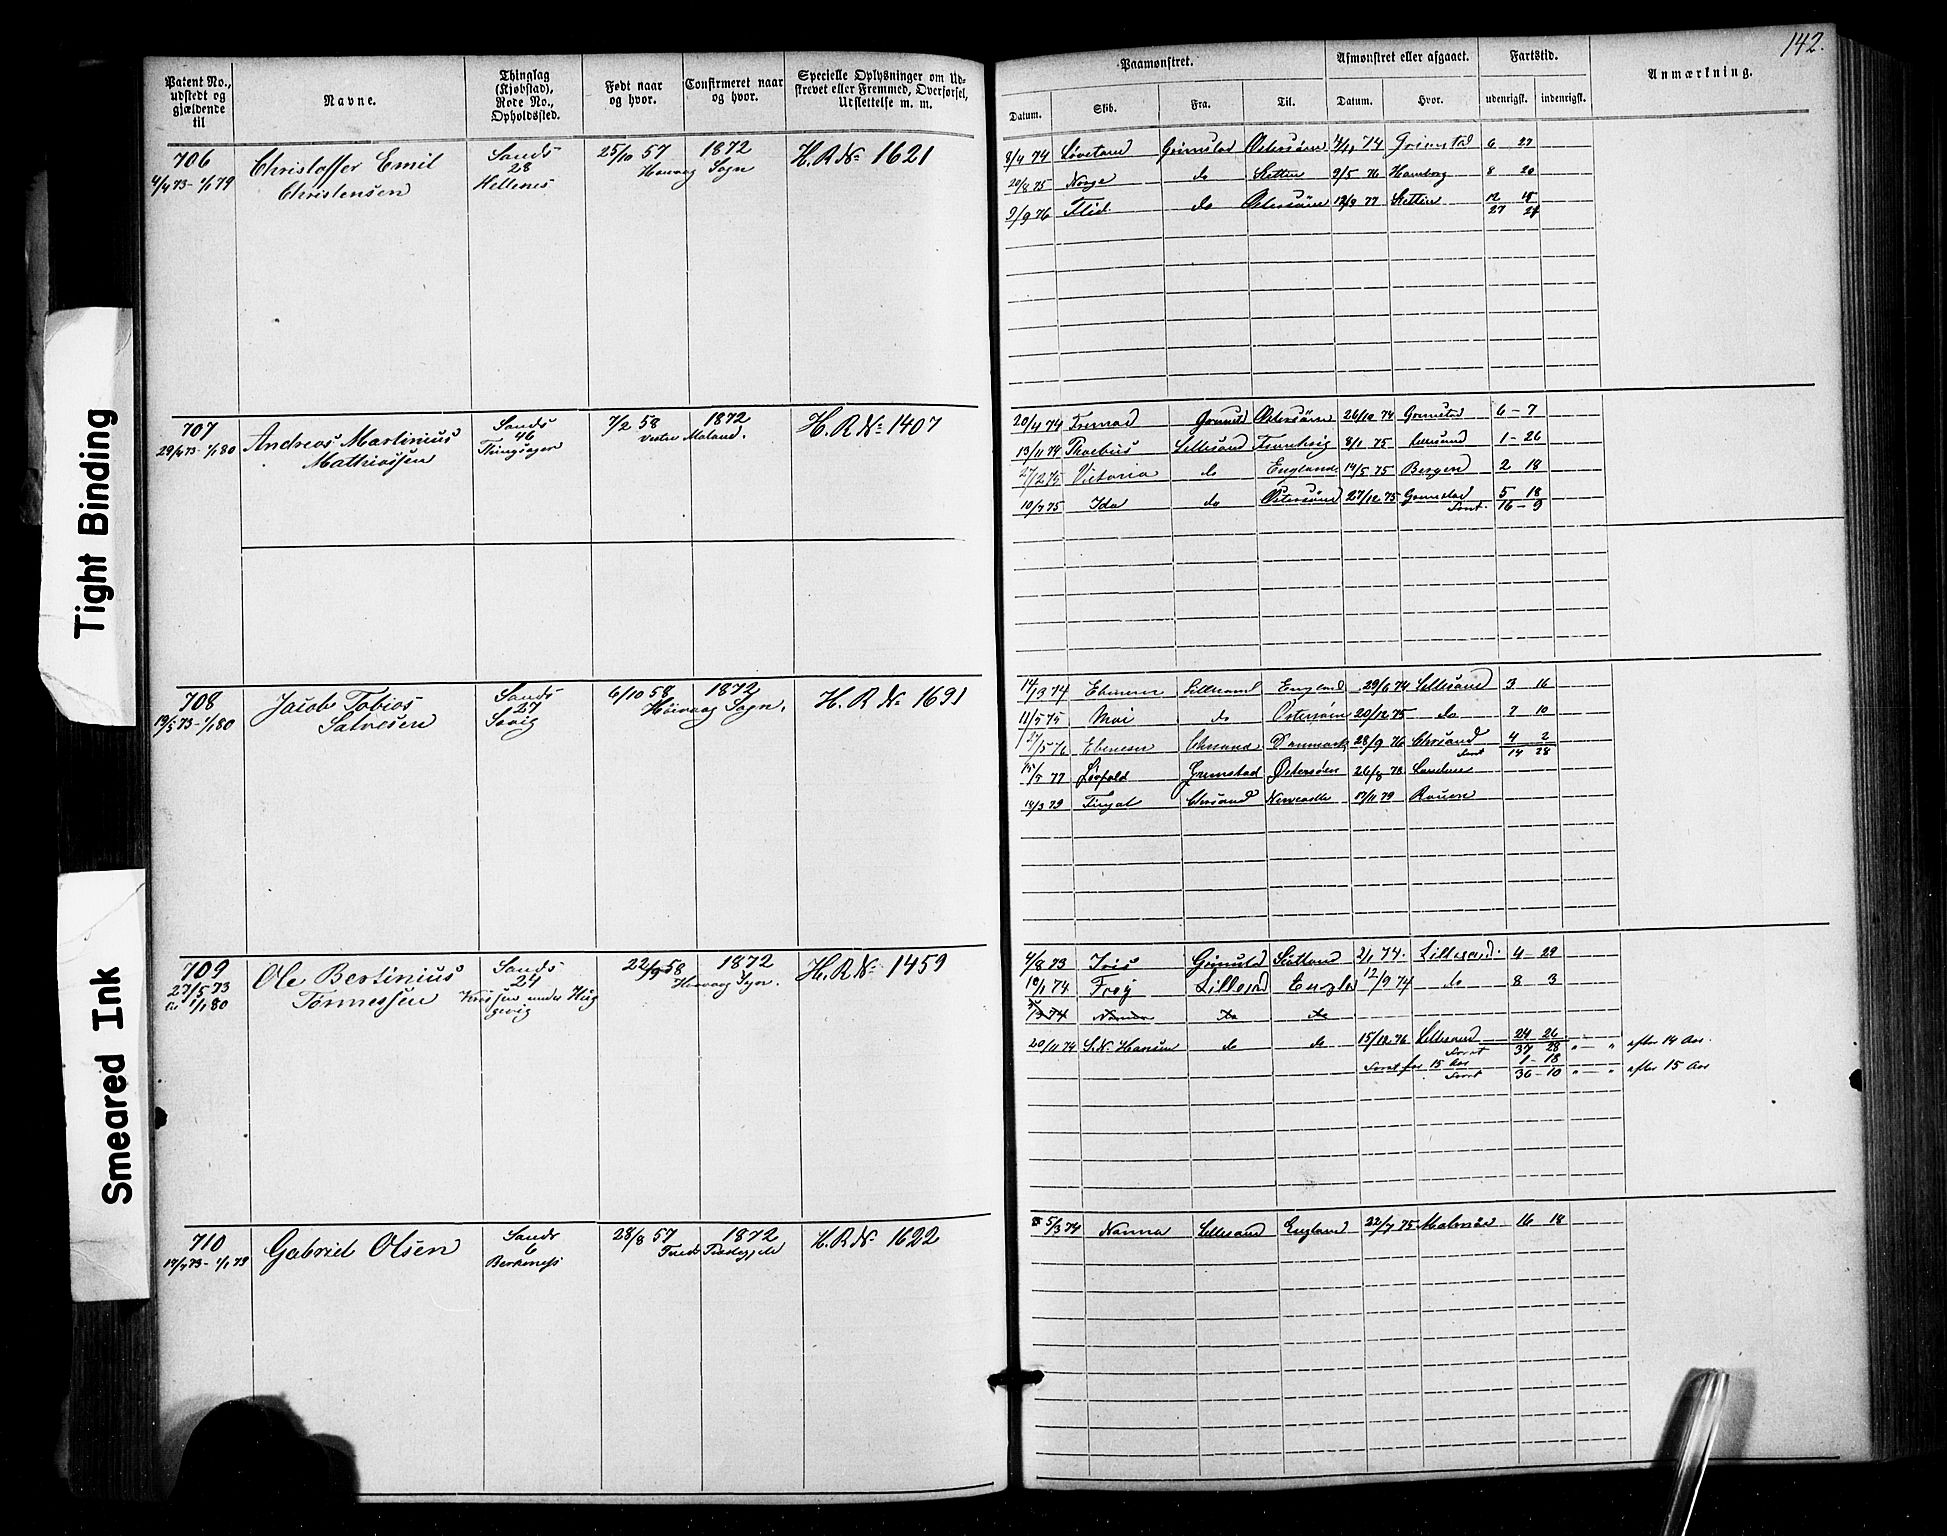 142.
Patent No., udstedt og gjældende til
Navne.
Thinglag (Kjøbstad), Rode No., Opholdssted.
Født naar og hvor.
Confirmeret naar og hvor.
Specielle Oplysninger om Udskrevet eller Fremmed, Overførsel, Udslettelse m. m.
Paamønstret.
Afmønstret eller afgaaet.
Fartstid.
Anmærkning.
Datum. Skib. Fra. Til. Datum. Hvor. udenrigsk. indenrigsk.
706 Christoffer Emil Sands 25/10 57 1872 H. R No 1621
4/4 73 - 1/1 79 Christensen 28 Høivaag Sogn
Hellenes
8/4 74 Løvetand Grimstad Østersøen 74 Grimstad 6 27
20/8 75 Norge do Stettin 2/5 76 Hamborg 8 20
2/9 76 Flid. do Østersøen 12/9 77 Stettin 12 18
27 24
707 Andreas Martinius Sands 7/2 58 1872 H. R No 1407
29/4 73 - 1/1 80 Mathiassen 46 Vestre Moland.
Thingsager
20/4 74 Fremad Grimstd Østersøen 26/10 74 Grimstad 6 - 7
13/11 74 Phoebus Lillesand 8/1 75 Lillesand 1 - 26
27/2 75 Victoria do England 14/5 75 Bergen 2 18
10/7 75 Ida do Østersøen 27/12 75 Grimstad 5 18
16 - 9
708 Jacob Tobias Sands 6/10 58 1872 H. R No 1691
19/5 73 - 1/1 80 Salvesen 27 Høivaag Sogn.
14/3 74 Ebeneser Lillesand England 29/6 74 Lillesand 3 16
11/5 75 Moi do Østersøen 20/12 75 do 7 10
27/5 76 Ebeneser Chrsand Danmark 28/9 76 Chrsand 4 2
14 28
15/5 77 Leopold Grimstad Østersøen 26/8 78
14/3 79 Fingal Chrsand Newcastle 17/11 79 Rouen
709 Ole Bertinius Sands 22/9 58 1872 H. R No 1459
27/5 73 Tønnessen 24 Høivaag Sogn.
til 1/1 80
4/8 73 Iris Grimstd Skotland 2/1 74. Lillesand. 4 - 29
10/1 74 Frey Lillesd Engld 12/9 74 do 8 3
3 74 Nanna do do
20/11 74 S. N. Hansen do do 15/12 76 Lillesand 24 26
37 28 " - " efter 14 Aar.
for 15 Aar 1 - 18
36 - 10 " - " efter 15 Aar
710 Gabriel Olsen Sands 28/8 57 1872 H. R No 1622
6
5/3 74 Nanna Lillesand England 22/7 75 Malmøe 16 18
Tight Binding
Smeared Ink